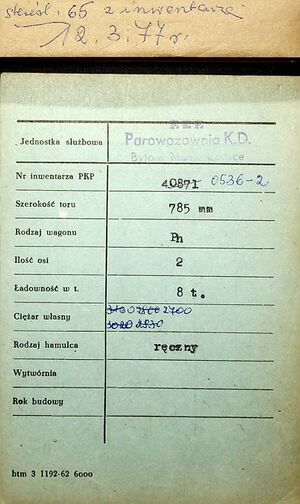 skreśl. 65 z inwentarza
12.3.77 r.
P.K.P.
Jednostka służbowa Parowozownia K.D.
Bytom
Nr inwentarza PKP 40871 0536-2
Szerokość toru 785 mm
Rodzaj wagonu Pn
Ilość osi 2
Ładowność w t. 8 t.
Ciężar własny 2700
Rodzaj hamulca ręczny
Wytwórnia
Rok budowy
btm 3 1192-62 6000